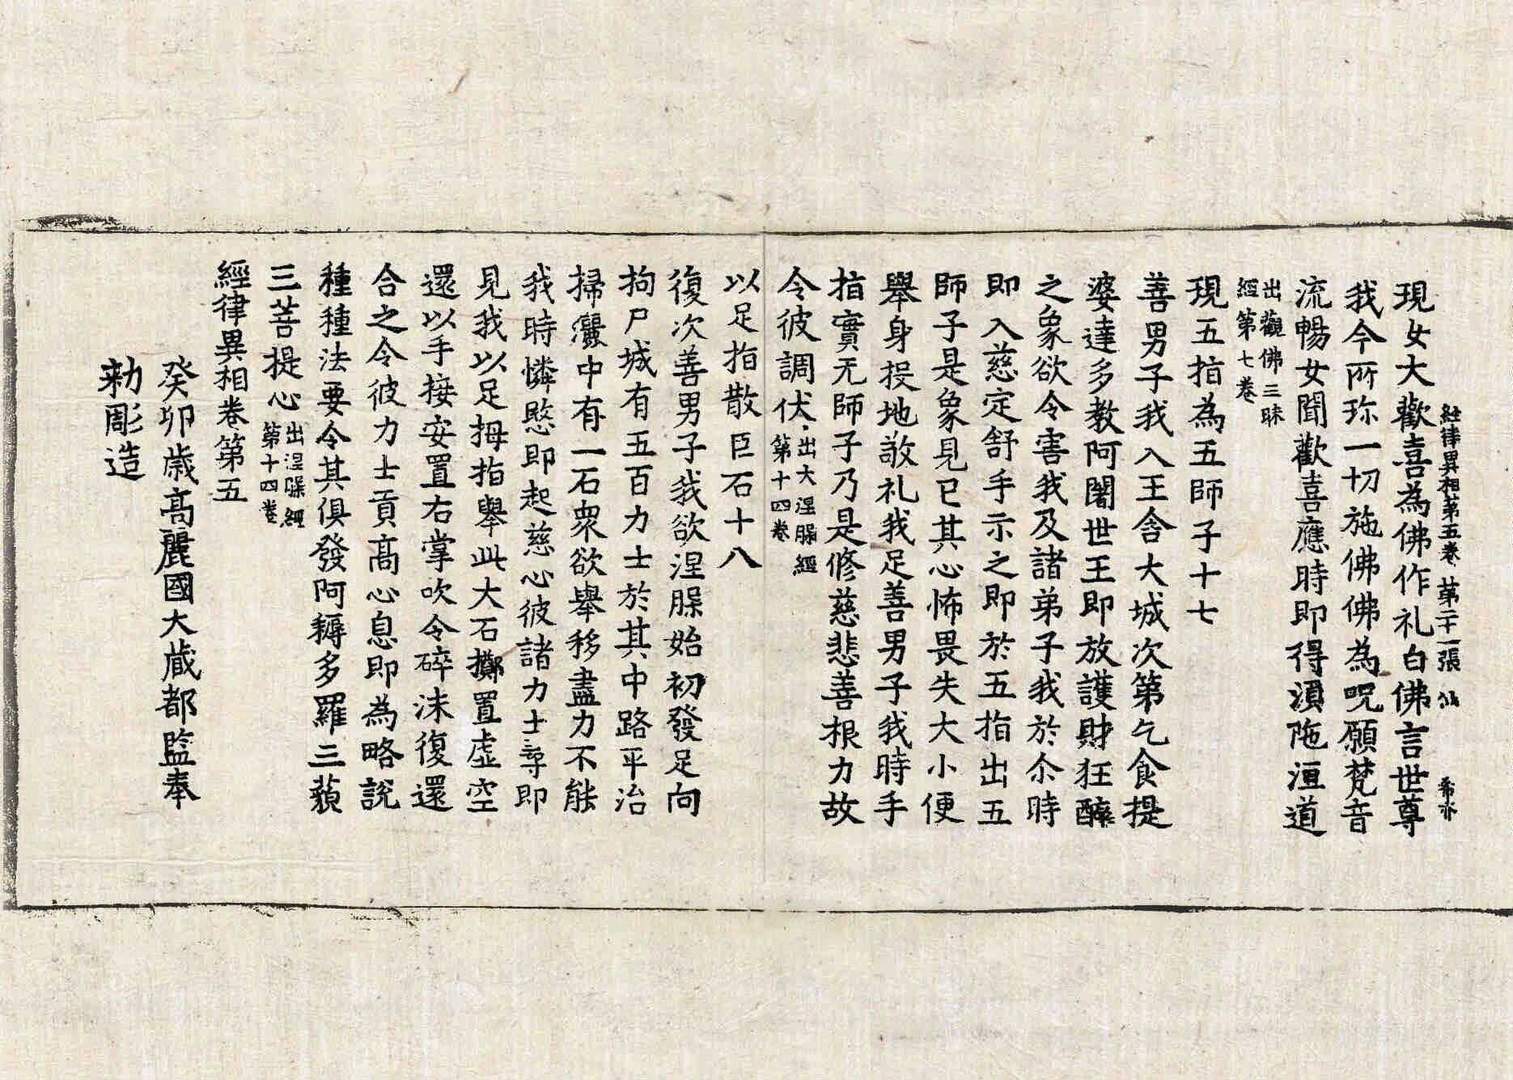 經律異相第五卷 第二十一張 仙 希木
現女大歡喜為佛作礼白佛言世尊
我今所珎一切施佛佛為呪願梵音
流暢女聞歡喜應時即得湏陁洹道
出觀佛三昧
經第七卷
現五指為五師子十七
善男子我入王舍大城次第乞食提
婆達多教阿闍世王即放護財狂醉
之象欲令害我及諸弟子我於尒時
即入慈定舒手示之即於五指出五
師子是象見已其心怖畏失大小便
舉身投地敬礼我足善男子我時手
指實无師子乃是修慈悲善根力故
令彼調伏出大涅槃經
第十四卷
以足指散巨石十八
復次善男子我欲涅槃始初發足向
拘尸城有五百力士於其中路平治
掃灑中有一石衆欲舉移盡力不能
我時憐愍即起慈心彼諸力士尋即
見我以足拇指舉此大石擲置虛空
還以手接安置右掌吹令碎沫復還
合之令彼力士貢高心息即為略說
種種法要令其俱發阿耨多羅三藐
三菩提心出涅槃經
第十四卷
經律異相卷第五
癸卯歲高麗國大藏都監奉
勑彫造